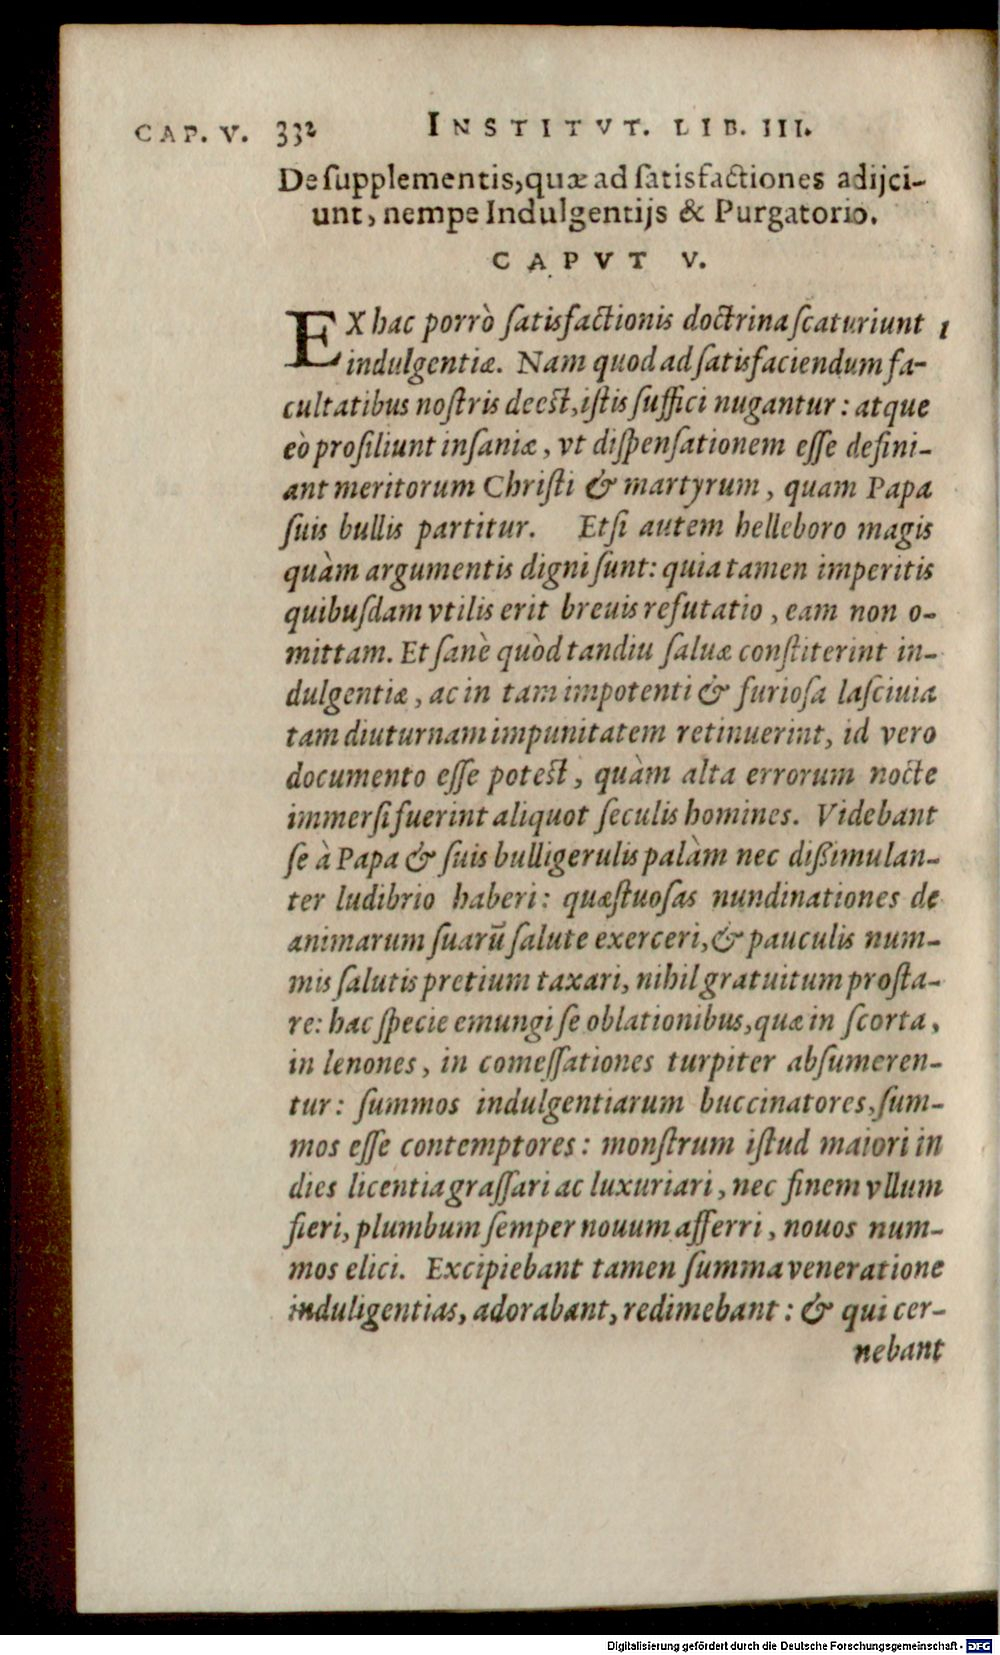 CAP. V. 332 INSTITVT. LIB. III.
De ſupplementis, quæ ad ſatisfactiones adijci-
unt, nempe Indulgentijs & Purgatorio.
CAPVT V.
EX hac porrò ſatisfactionis doctrina ſcaturiunt 1
indulgentiæ. Nam quod ad ſatisfaciendum fa-
cultatibus noſtris deest, iſtis ſuffici nugantur: atque
eò proſiliunt inſaniæ, vt diſpenſationem eſſe defini-
ant meritorum Chriſti & martyrum, quam Papa
ſuis bullis partitur. Etſi autem helleboro magis
quàm argumentis digni ſunt: quia tamen imperitis
quibuſdam vtilis erit breuis refutatio, eam non o-
mittam. Et ſanè quòd tandiu ſaluæ conſtiterint in-
dulgentiæ, ac in tam impotenti & furioſa laſciuia
tam diuturnam impunitatem retinuerint, id vero
documento eſſe potest, quàm alta errorum nocte
immerſi fuerint aliquot ſeculis homines. Videbant
ſe à Papa & ſuis bulligerulis palàm nec dißimulan-
ter ludibrio haberi: quæſtuoſas nundinationes de
animarum ſuarũ ſalute exerceri, & pauculis num-
mis ſalutis pretium taxari, nihil gratuitum proſta-
re: hac ſpecie emungi ſe oblationibus, quæ in ſcorta,
in lenones, in comeſſationes turpiter abſumeren-
tur: ſummos indulgentiarum buccinatores, ſum-
mos eſſe contemptores: monſtrum iſtud maiori in
dies licentia graſſari ac luxuriari, nec finem vllum
fieri, plumbum ſemper nouum afferri, nouos num-
mos elici. Excipiebant tamen ſumma veneratione
induligentias, adorabant, redimebant: & qui cer-
nebant
Digitalisierung gefördert durch die Deutsche Forschungsgemeinschaft - DFG